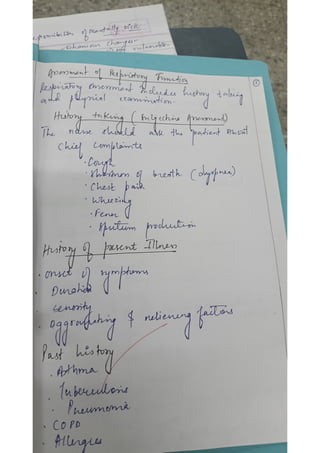 of mentally sick
changes
Assessment of Respiratory Function
①
Respiratory assessment includes history taking
and physical examination.
History taking (Subjective Assessment)
The nurse should ask the patient about
Chief complaints
· Cough
· Shortness of breath (dyspnea)
· Chest pain
· Wheezing
· Fever
· Sputum production
History of present Illness
· onset of symptoms
· Duration
· Severity
· aggravating & relieving factors
Past history
· Asthma
· Tuberculosis
· Pneumonia
· COPD
· Allergies